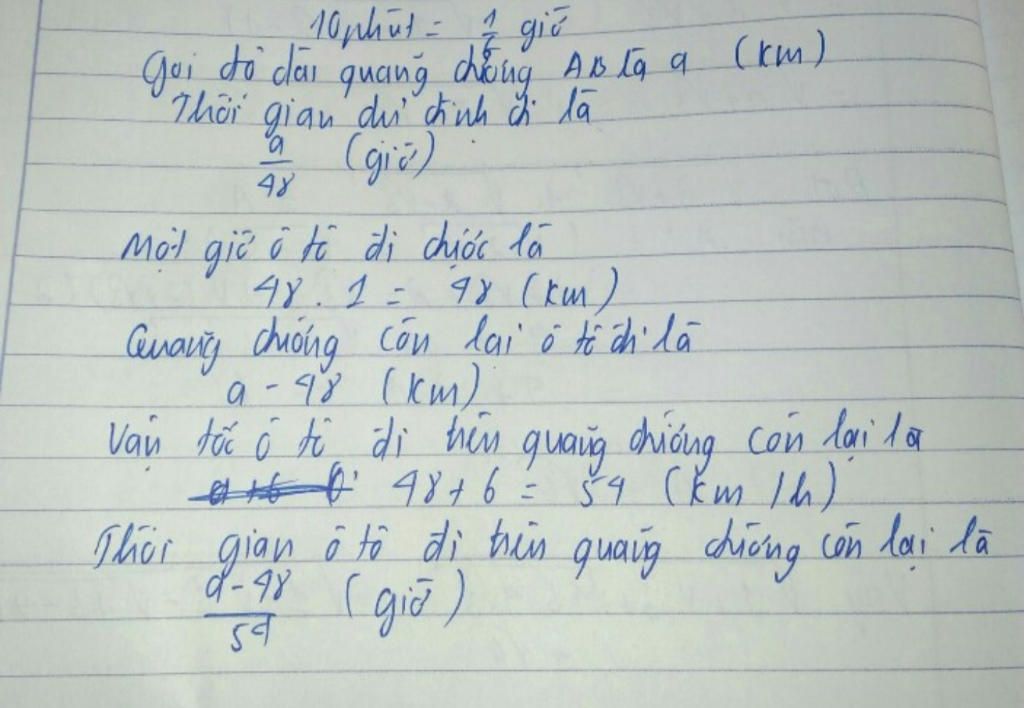 10 phút = 1/6 giờ
Gọi độ dài quãng đường AB là a (km)
Thời gian dự định đi là
a/48 (giờ)
Một giờ ô tô đi được là
48 . 1 = 48 (km)
Quãng đường còn lại ô tô đi là
a - 48 (km)
Vận tốc ô tô đi trên quãng đường còn lại là
48 + 6 = 54 (km/h)
Thời gian ô tô đi trên quãng đường còn lại là
a-48/54 (giờ)